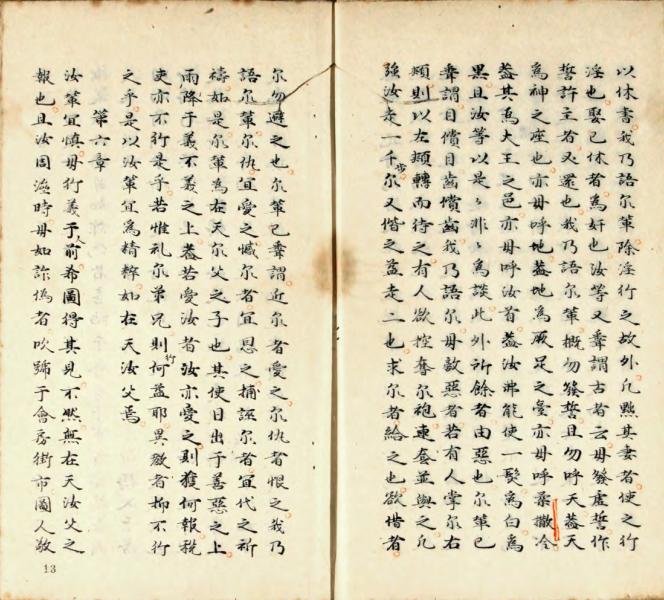 以休書我乃語尔等除淫行之故外凡點其妻者使之行
淫也娶已休者為奸也汝等又聞謂古者云毋發虛誓作
誓許主者又還也我乃語尔等概勿發誓且勿呼天蓋天
為神之座也亦毋呼地蓋地為厥足之凳亦毋呼柔撒冷
蓋其為大王之邑亦毋呼汝首蓋汝弗能使一髮為白為
黑且汝等以是〻非〻為談此外所餘者由惡也尔等已
聞謂目償目齒償齒我乃語尔毋敵惡者若有人掌尔右
頰則以左頰轉而待之有人欲控奪尔袍連套並與之凡
強汝走一千步尔又偕之益走二也求尔者給之也欲借者
尔勿避之也尔等已聞謂近尔者愛之尔仇者恨之我乃
語尔等尔仇宜愛之憾尔者宜恩之捅誣尔者宜代之祈
禱如是尔等為在天尔父之子也其使日出于善惡之上
雨降于義不義之上蓋若愛汝者汝亦愛之則獲何報稅
吏亦不行是乎若惟礼尔弟兄則行何益耶異教者抑不行
之乎是以汝等宜為精粹如在天汝父焉
第六章
汝等宜慎毋行義于人前希圖得其見不然無在天汝父之
報也且汝周濟時毋如詐偽者吹號于會房街市圖人敬
13